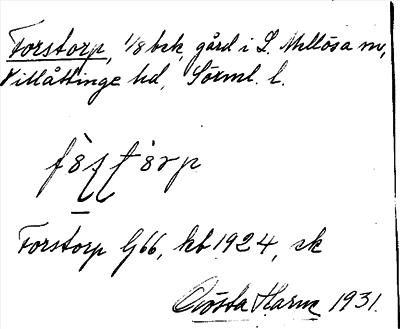 Forstorp, 1/8 bsk, gård i L. Mellösa sn,
Villåttinge hd, Sörml. l.
Forstorp G66, kb 1924, sk
Gösta Harm 1931.